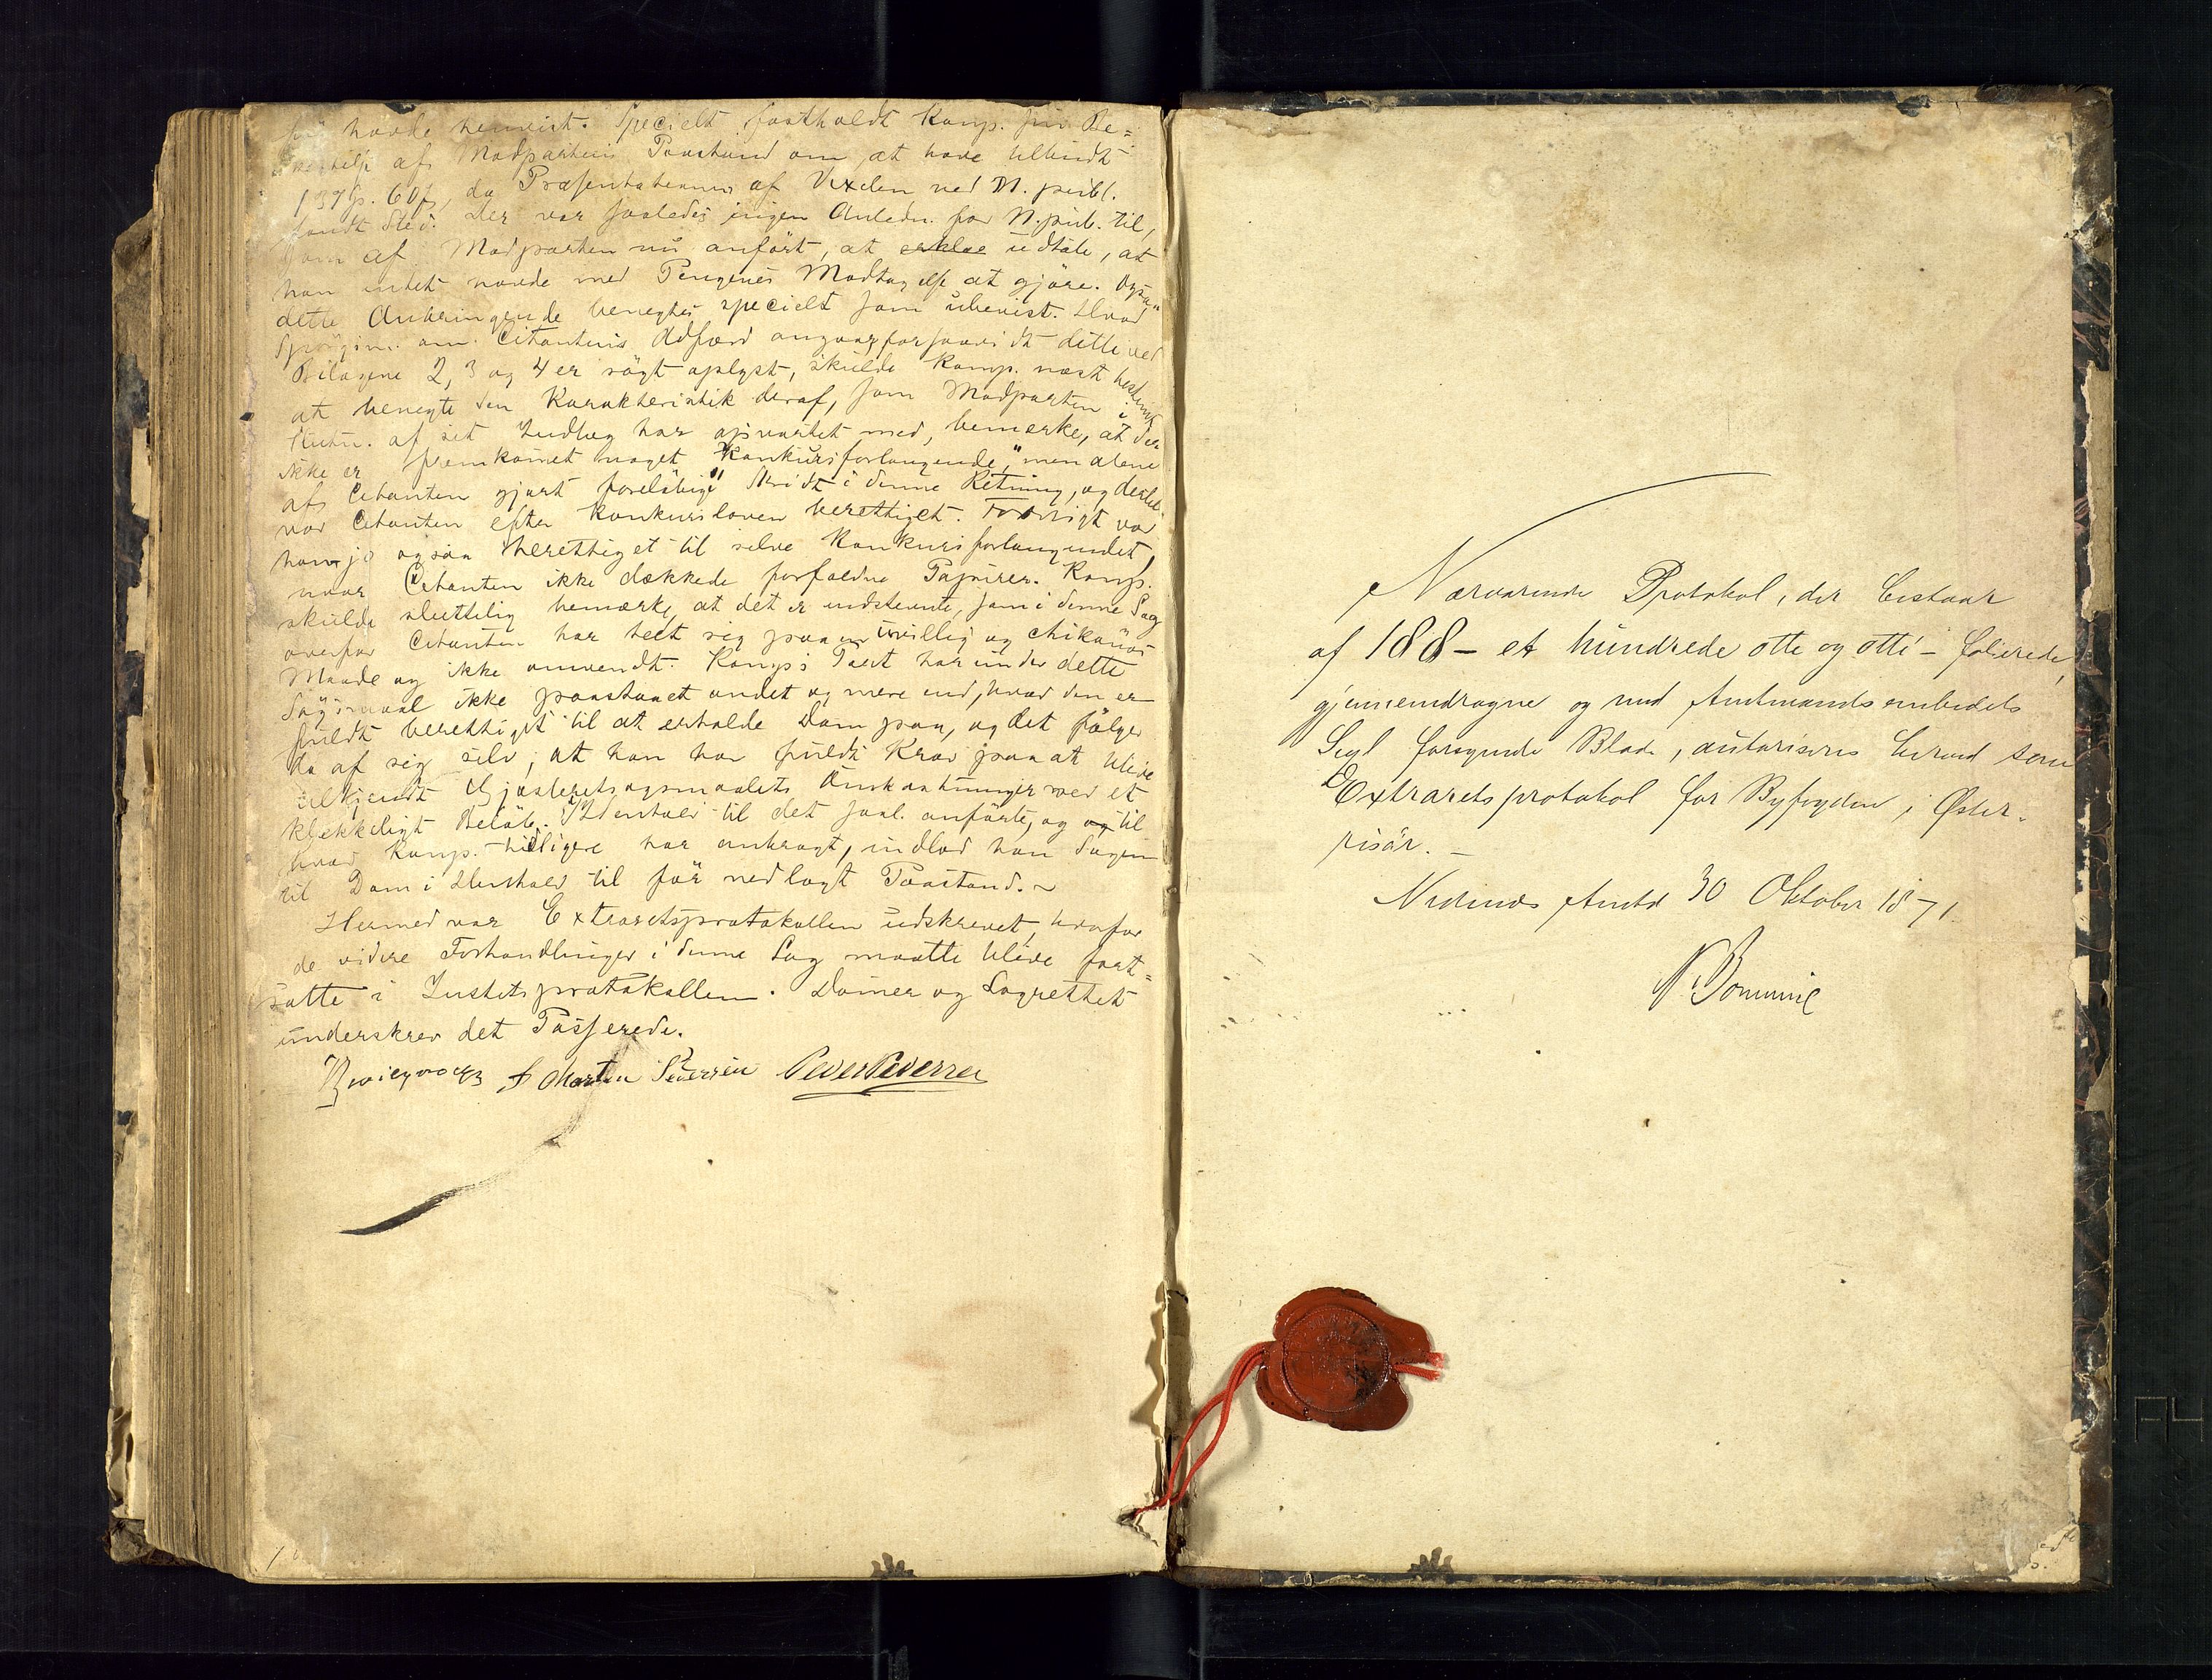 havde henvist. Specielt fastholdt Komp. sin Be=
af Modpartens Paastand om at have tilbudt
137 Sp. 60 s, da Præsentationen af Vexlen ved N. publ.
fandt Sted. Der var saaledes ingen Anledn. for N. pub. til,
som af Modparten nu anført, at udtale, at
han intet havde med Pengenes Modtagelse at gjøre. Ogsaa
dette Anbringende benegtes specielt som ubevist. Hvad
Spørgsm. om Citantens Adfærd angaar forsaavidt dette ved
Bilagene 2, 3 og 4 er søgt oplyst, skulde Komp. næst bestemt
at benegte den Karakteristik deraf, som Modparten i
Slutn. af sit Indlæg har opvartet med, bemerke, at der
ikke er fremkomet noget "Konkursforlangende," men alene
af Citanten gjort foreløbige Skridt i denne Retning, og dertil
var Citanten efter Konkursloven berettiget. Forøvrigt var
han jo ogsaa berettiget til selve Konkursforlangendet,
naar Citanten ikke dækkede forfaldne Papirer. Komp.
skulde sluttelig bemærke, at det er indstevnte, som i denne Sag
overfor Citanten har tedt sig paa en uvillig og chikanøs
Maade og ikke omvendt. Komp.s Part har under dette
Søgsmaal ikke paastaaet andet og mere end, hvad den er
fuldt berettiget til at erholde Dom paa, og det følger
da af sig selv, at han har fuldt Krav paa at blive
tilkjendt Gjæsteretssøgsmaalets Omkostninger med et
klækkeligt Beløb. I Henhold til det saal. anførte, og og til
hvad Komp. tidligere har anbragt, indlod han Sagen
til Dom i Henhold til før nedlagt Paastand. ~
Hermed var Extraretsprotokollen udskrevet, hvorfor
de videre Forhandlinger i denne Sag maatte blive fort=
satte i Justitsprotokollen. Dommer og Lagrettet
underskrev det Passerede.
Morten Seversen Peder Pedersen
Nærværende Protokol, der bestaar
af 188 – et hundrede otte og otti – folierede,
gjennemdragne og med Amtmandsembedets
Segl forsynede Blade, autoriseres herved som
Extraretsprotokol for Byfogden i Øster-
risør. –
Nedenæs Amt d 30 Oktober 1871.